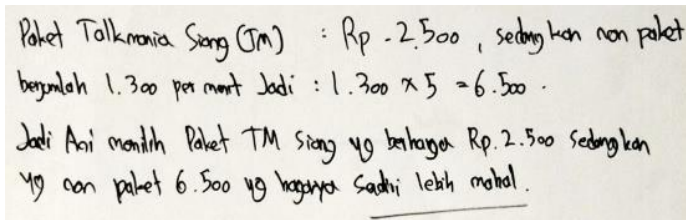 Paket Talkmania Siang (TM) : Rp. 2.500, sedangkan non paket
berjumlah 1.300 per menit Jadi : 1.300 x 5 = 6.500.
Jadi Ani memilih Paket TM Siang yg berharga Rp. 2.500 sedangkan
yg non paket 6.500 yg harganya lebih mahal.